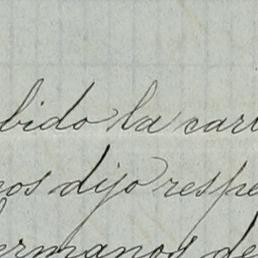 bido la cart
nos dijo respe
hermanos de